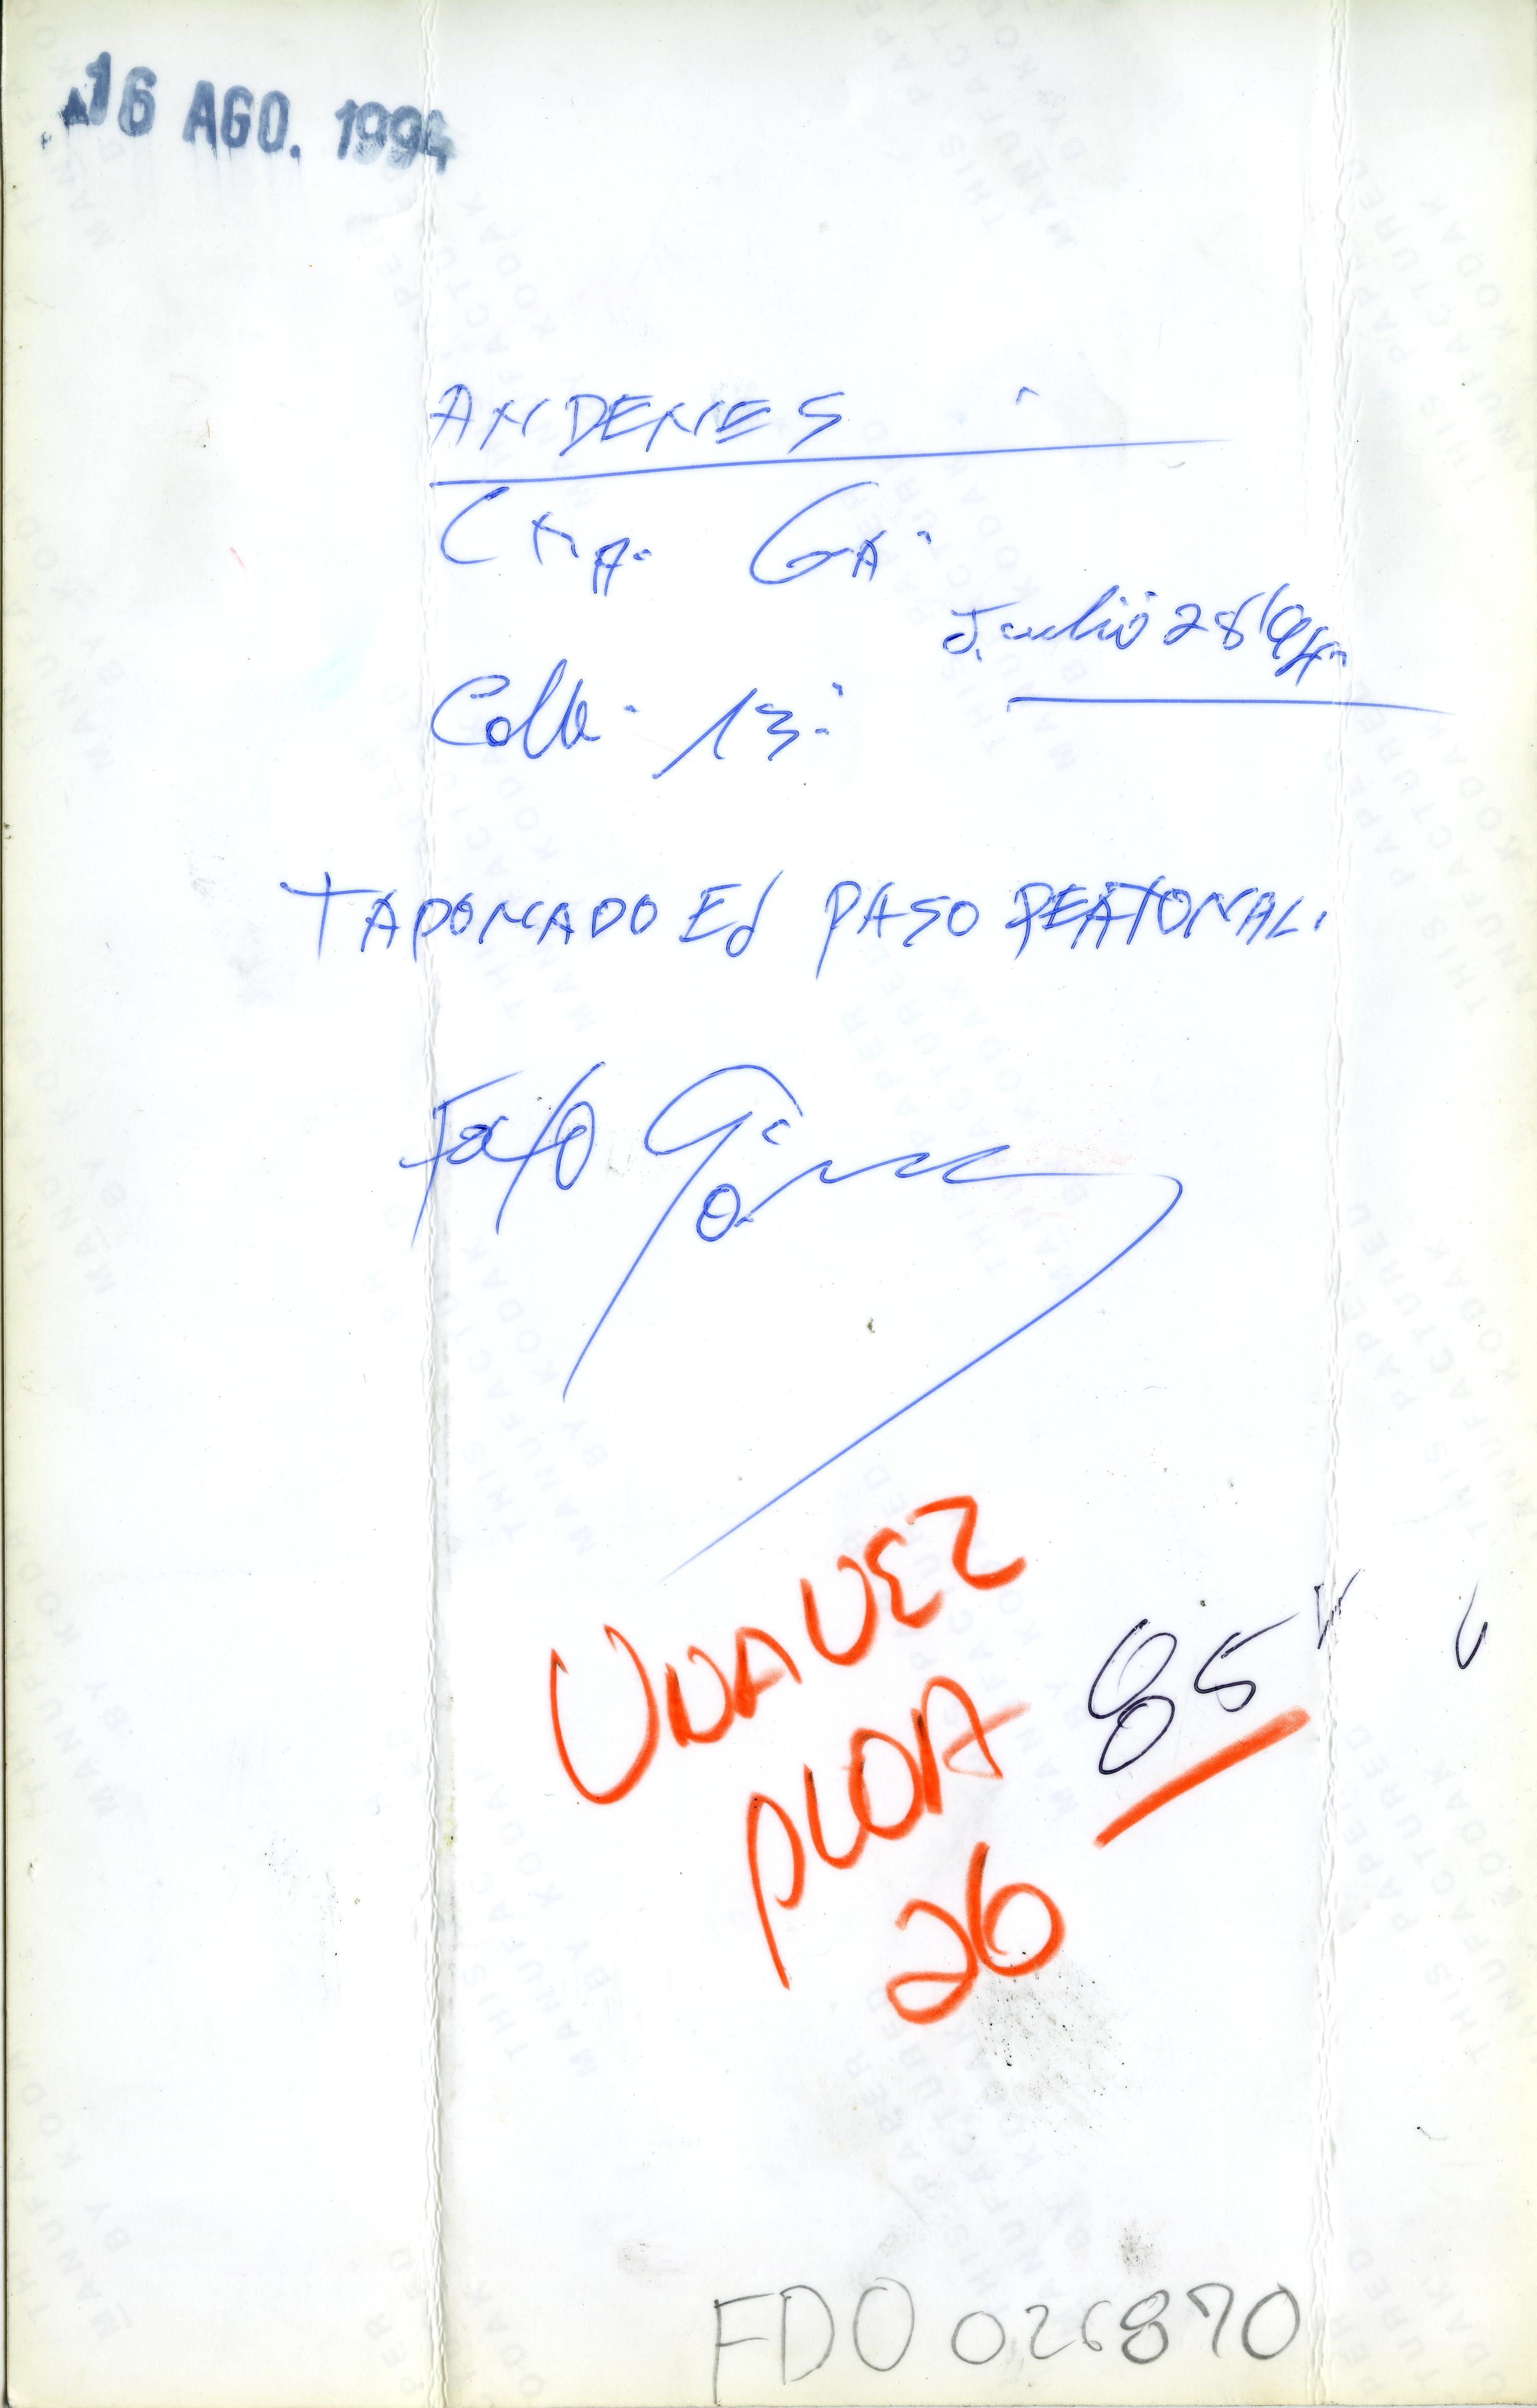 16 AGO. 1994
ANDENES
Cra. 6a.
Julio 28/94.
Calle 13.
TAPONADO El PASO PEATONAL.
Foto Gómez
UNAVEZ
85
26
FDO 026870
THIS PAPER
MANUFACTURED
BY KODAK